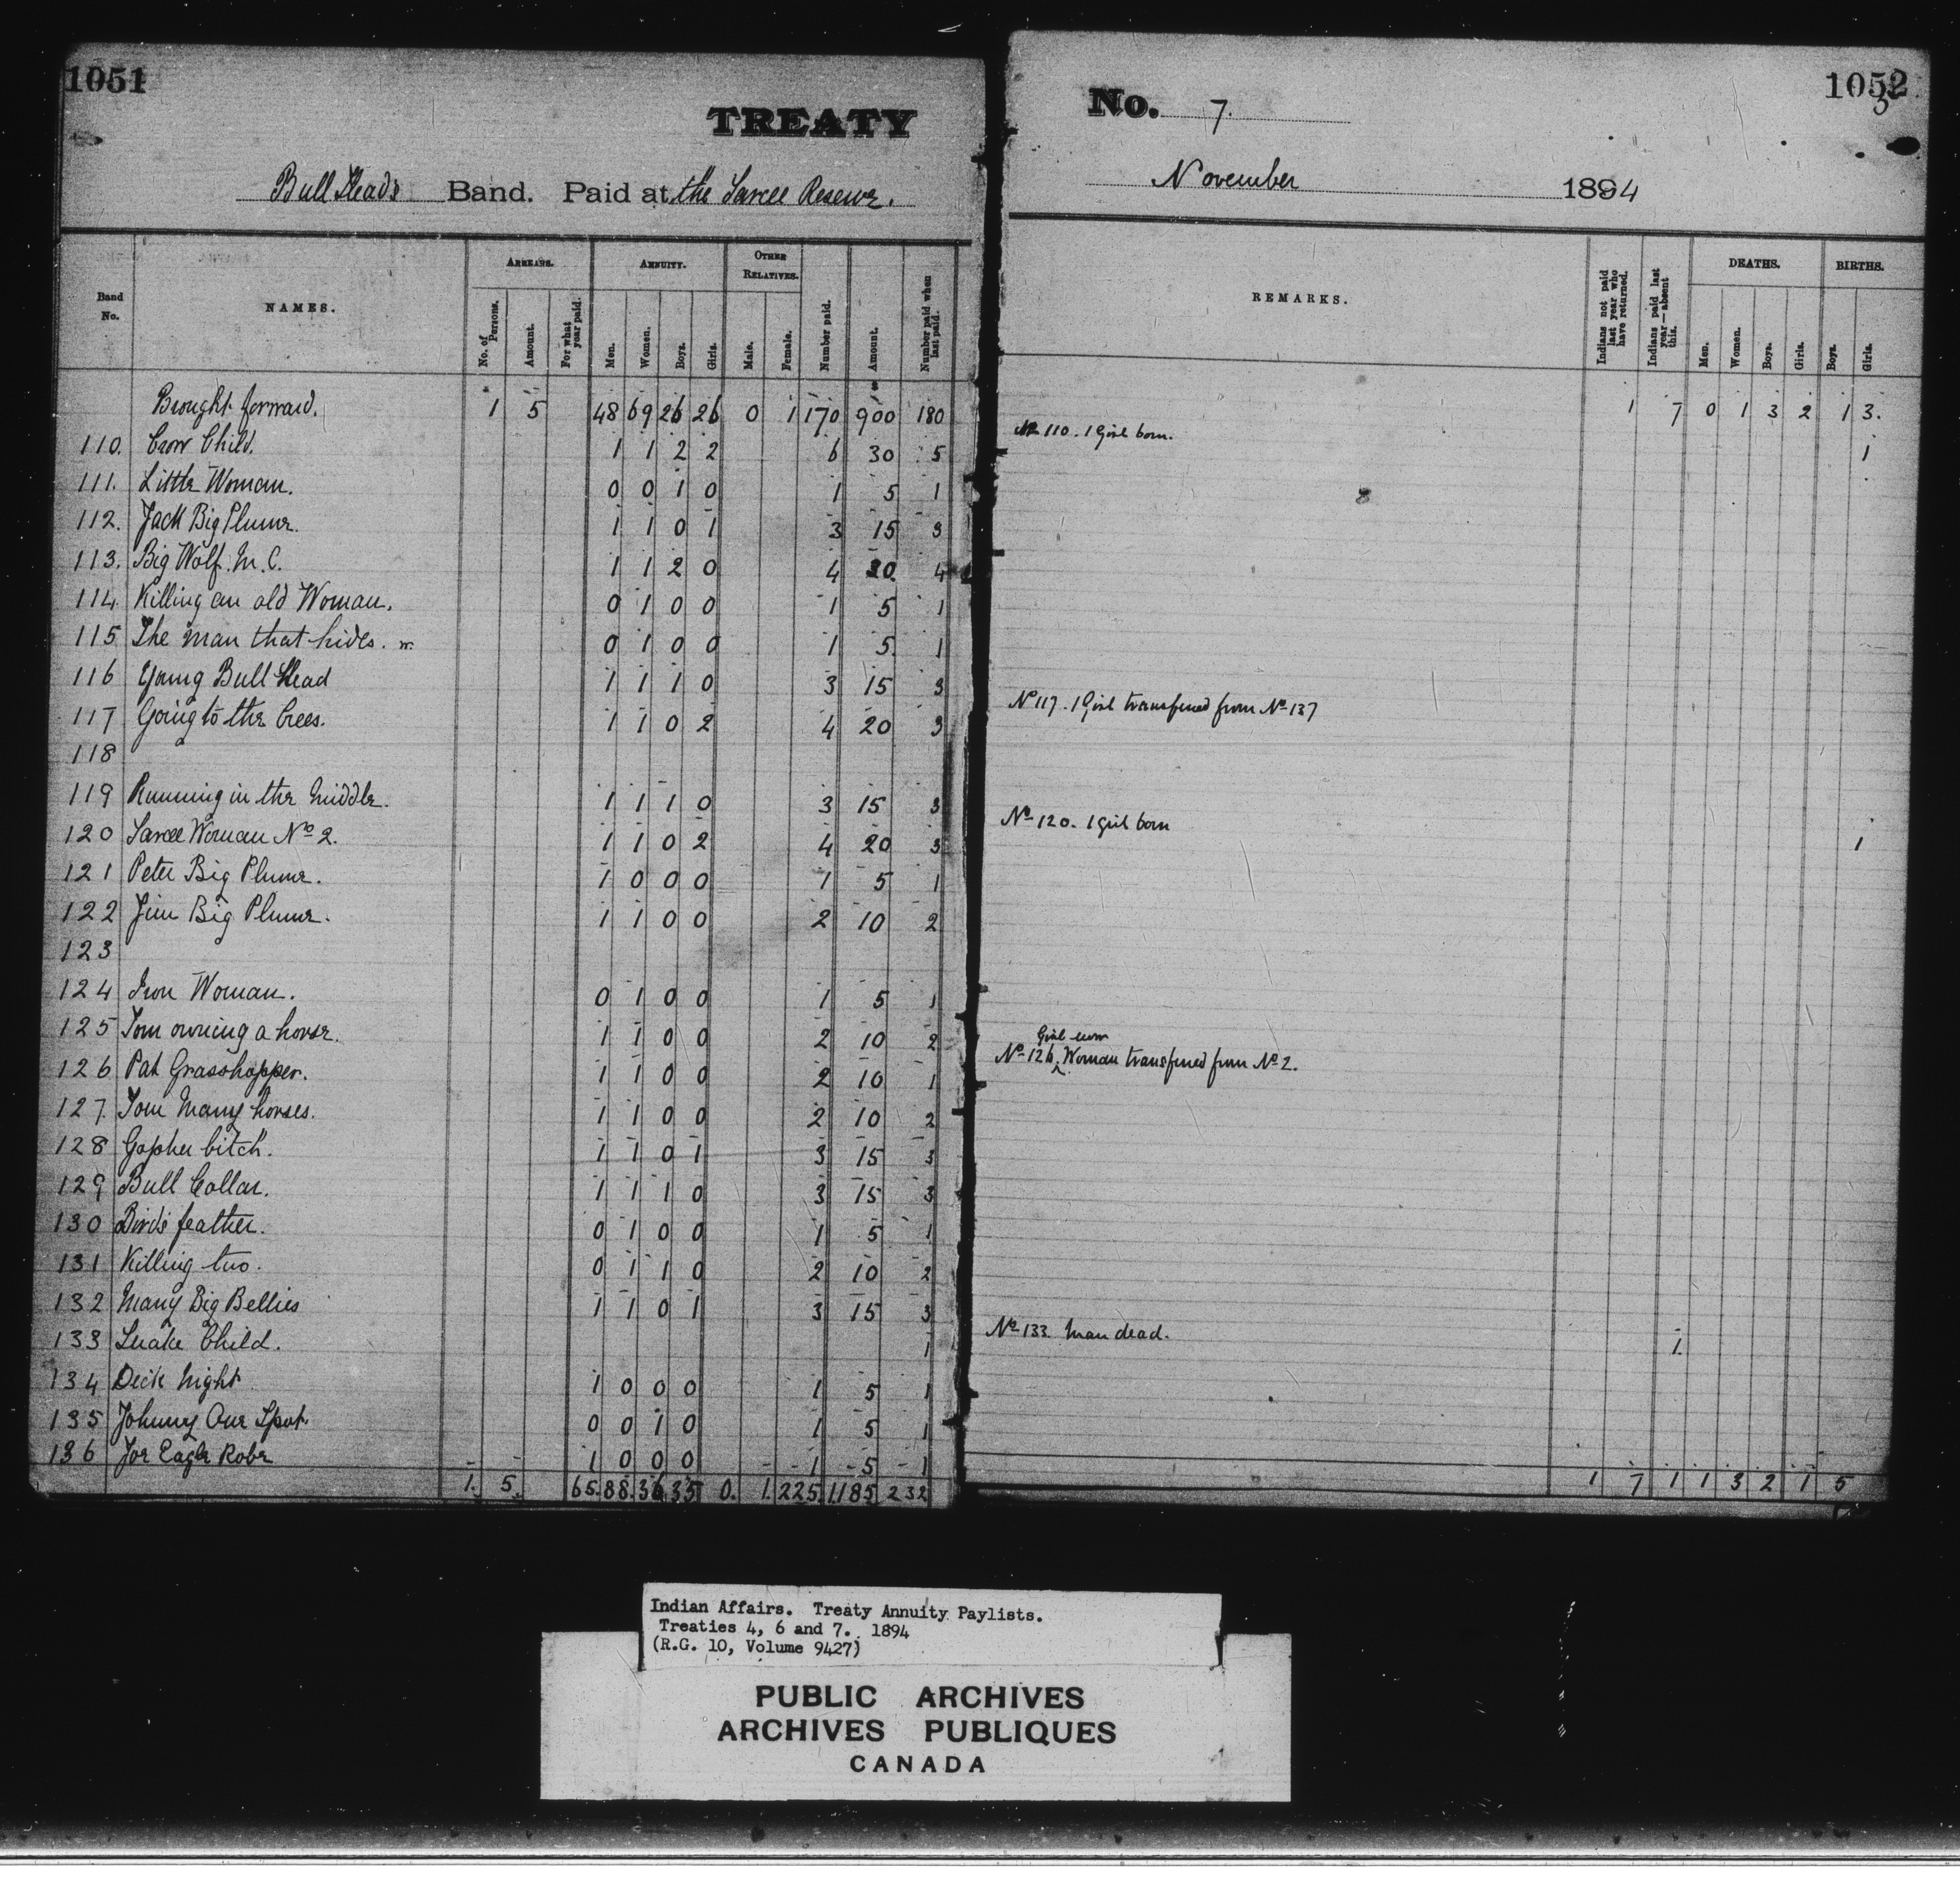 1051
TREATY
Bull Heads Band. Paid at the Sarcee Reserve.
Band No. NAMES. ARREARS. ANNUITY. OTHER RELATIVES. Number paid. Amount. Number paid when last paid.
No. of Persons. Amount. For what year paid. Men. Women. Boys. Girls. Male. Female.
Brought forward. 1 5 48 69 26 26 0 1 170 900 180
110. Crow Child. 1 1 2 2 6 30 5
111. Little Woman. 0 0 1 0 1 5 1
112. Jack Big Plume. 1 1 0 1 3 15 3
113. Big Wolf. M.C. 1 1 2 0 4 20. 4
114. Killing an old Woman. 0 1 0 0 1 5 1
115 The man that hides. w. 0 1 0 0 1 5. 1
116 Young Bull Head 1 1 1 0 3 15 3
117 Going to the Crees. 1 1 0 2 4 20 3
118
119 Running in the Middle. 1 1 1 0 3 15 3
120 Sarcee Woman No 2. 1 1 0 2 4 20 3
121 Peter Big Plume. 1 0 0 0 1 5 1
122 Jim Big Plume. 1 1 0 0 2 10 2
123
124 Iron Woman. 0 1 0 0 1 5 1
125 Tom owning a horse. 1 1 0 0 2 10 2
126 Pat Grasshopper. 1 1 0 0 2 10 1
127. Tom Many horses. 1 1 0 0 2 10 2
128 Gopher bitch. 1 1 0 1 3 15 3
129 Bull Collar. 1 1 1 0 3 15 3
130 Birds feather. 0 1 0 0 1 5 1
131 Killing two. 0 1 1 0 2 10 2
132 Many Big Bellies 1 1 0 1 3 15 3
133 Snake Child. 1
134 Dick Night 1 0 0 0 1 5 1
135 Johnny One Spot. 0 0 1 0 1 5 1
136 Joe Eagle Robe 1 0 0 0 1 5 1
1. 5. 65. 88. 36 35 0. 1. 225 1185 232
1052
No. 7.
November 1894
REMARKS. Indians not paid last year who have returned. Indians paid last year—absent this. DEATHS. BIRTHS.
Men. Women. Boys. Girls. Boys. Girls.
1 7 0 1 3 2 1 3.
No 110. 1 Girl born. 1
No 117. 1 Girl transferred from No 137
No 120. 1 girl born 1
Girl now
No 126 Woman transferred from No 2.
No 133. Man dead. 1.
1 7 1 1 3 2 1 5
Indian Affairs. Treaty Annuity Paylists.
Treaties 4, 6 and 7. 1894
(R.G. 10, Volume 9427)
PUBLIC ARCHIVES
ARCHIVES PUBLIQUES
CANADA